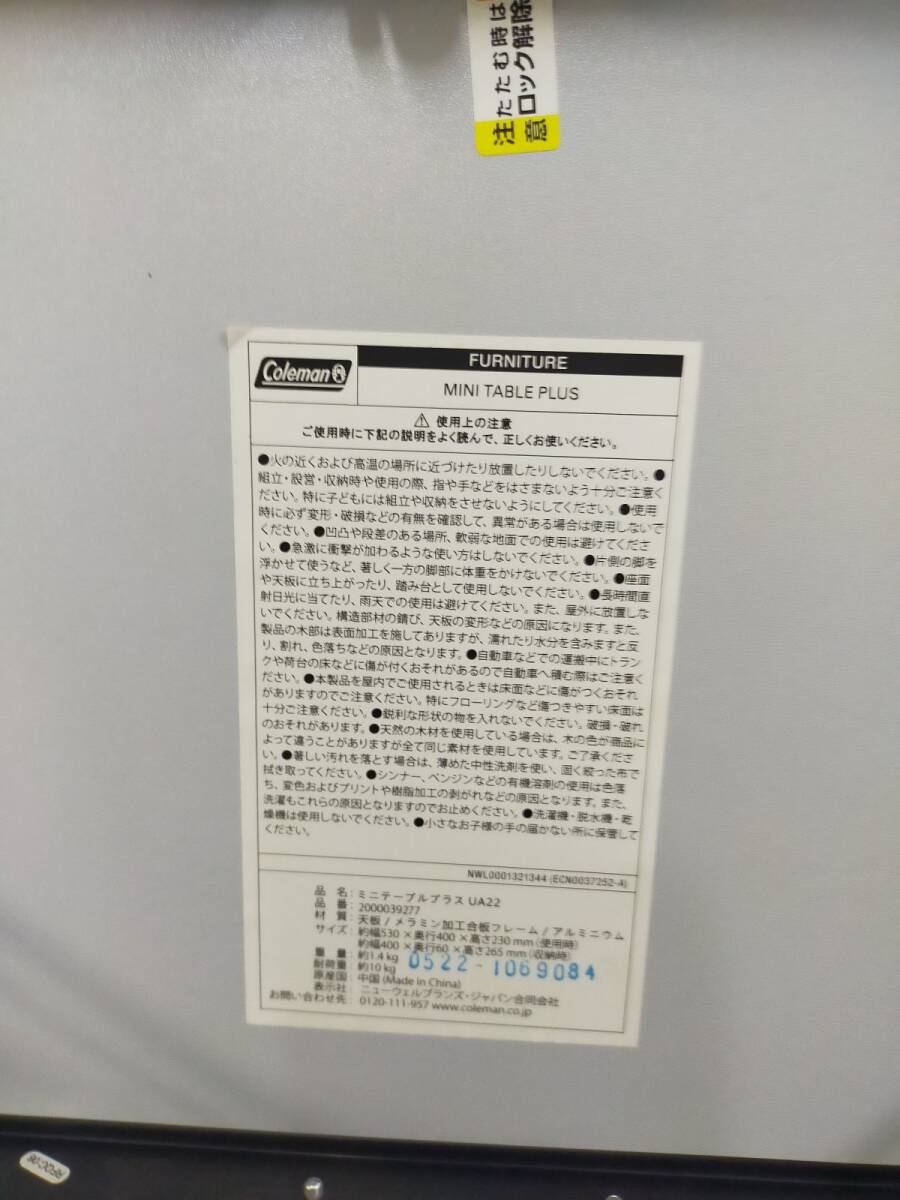 たたむ時は
ロック解除
注意
Coleman
FURNITURE
MINI TABLE PLUS
⚠ 使用上の注意
ご使用時に下記の説明をよく読んで、正しくお使いください。
●火の近くおよび高温の場所に近づけたり放置したりしないでください。●
組立・設営・収納時や使用の際、指や手などをはさまないよう十分ご注意く
ださい。特に子どもには組立や収納をさせないようにしてください。●使用
時に必ず変形・破損などの有無を確認して、異常がある場合は使用しないで
ください。●凹凸や段差のある場所、軟弱な地面での使用は避けてくださ
い。●急激に衝撃が加わるような使い方はしないでください。●片側の脚を
浮かせて使うなど、著しく一方の脚部に体重をかけないでください。●座面
や天板に立ち上がったり、踏み台として使用しないでください。●長時間直
射日光に当てたり、雨天での使用は避けてください。また、屋外に放置しな
いでください。構造部材の錆び、天板の変形などの原因になります。また、
製品の木部は表面加工を施してありますが、濡れたり水分を含みますと反
り、割れ、色落ちなどの原因となります。●自動車などでの運搬中にトラン
クや荷台の床などに傷が付くおそれがあるので自動車へ積む際はご注意く
ださい。●本製品を屋内でご使用されるときは床面などに傷がつくおそれ
がありますのでご注意ください。特にフローリングなど傷つきやすい床面は
十分ご注意ください。●鋭利な形状の物を入れないでください。破損・破れ
のおそれがあります。●天然の木材を使用している場合は、木の色が商品に
よって違うことがありますが全て同じ素材を使用しています。ご了承くださ
い。●著しい汚れを落とす場合は、薄めた中性洗剤を使い、固く絞った布で
拭き取ってください。●シンナー、ベンジンなどの有機溶剤の使用は色落
ち、変色およびプリントや樹脂加工の剥がれなどの原因となります。また、
洗濯もこれらの原因となりますのでお止めください。●洗濯機・脱水機・乾
燥機は使用しないでください。●小さなお子様の手の届かない所に保管して
ください。
NWL0001321344 (ECN0037252-A)
品 名：ミニテーブルプラス UA22
品 番：2000039277
材 質：天板 / メラミン加工合板フレーム / アルミニウム
サイズ：約幅530 × 奥行400 × 高さ230 mm（使用時）
約幅400 × 奥行60 × 高さ265 mm（収納時）
重 量：約1.4 kg
耐荷重：約10 kg
0522-1069084
原産国：中国 (Made in China)
表示社：ニューウェルブランズ・ジャパン合同会社
お問い合わせ先：0120-111-957 www.coleman.co.jp